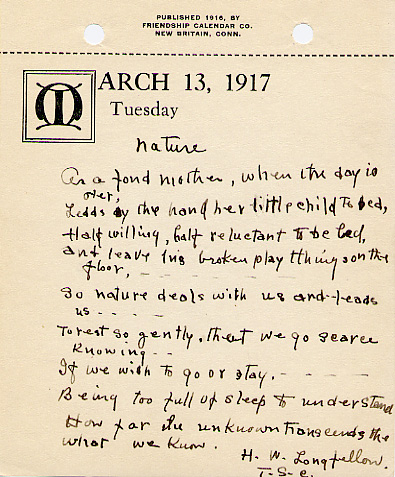 PUBLISHED 1916, BY
FRIENDSHIP CALENDAR CO.
NEW BRITAIN, CONN.
MARCH 13, 1917
Tuesday
Nature
As a fond mother, when the day is
over,
Leads by the hand her little child to bed,
Half willing, half reluctant to be led,
And leave his broken playthings on the
floor,
So nature deals with us and leads
us
To rest so gently, that we go scarce
knowing
If we wish to go or stay.
Being too full of sleep to understand
How far the unknown transcends the
what we know.
H. W. Longfellow.
T-S-C.